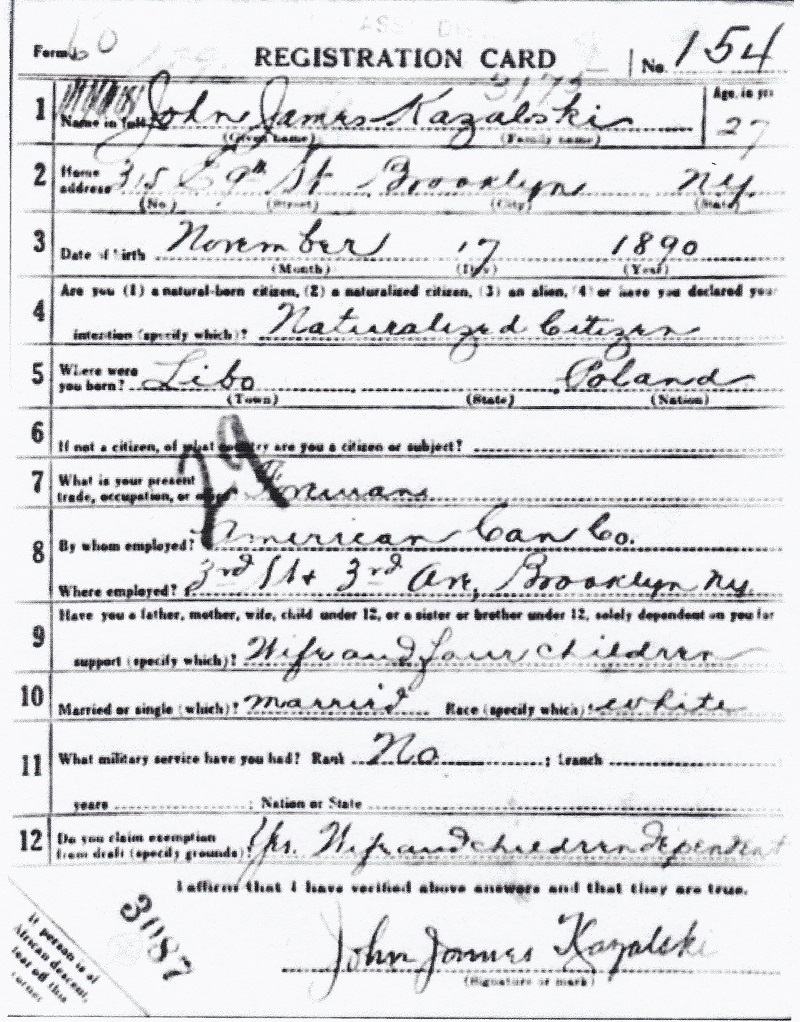 Form 60
REGISTRATION CARD No. 154
3173
1 Name in full John James Kazalski Age, in yrs
(Given name) (Family name) 27
2 Home address 315 E 9th St Brooklyn NY.
(No.) (Street) (City) (State)
3 Date of birth November 17 1890
(Month) (Day) (Year)
4 Are you (1) a natural-born citizen, (2) a naturalized citizen, (3) an alien, (4) or have you declared your
intention (specify which)? Naturalized Citizen
5 Where were you born? Libo Poland
(Town) (State) (Nation)
6 If not a citizen, of what country are you a citizen or subject?
29
7 What is your present
trade, occupation, or office
8 By whom employed? American Can Co.
Where employed? 3rd St & 3rd Ave, Brooklyn NY.
9 Have you a father, mother, wife, child under 12, or a sister or brother under 12, solely dependent on you for
support (specify which)? Wife and four children
10 Married or single (which)? married Race (specify which)? white
11 What military service have you had? Rank No ; branch
years ; Nation or State
12 Do you claim exemption
from draft (specify grounds)? Yes. Wife and children dependent
I affirm that I have verified above answers and that they are true.
John James Kazalski
(Signature or mark)
3087
If person is of
African descent,
tear off this
corner.